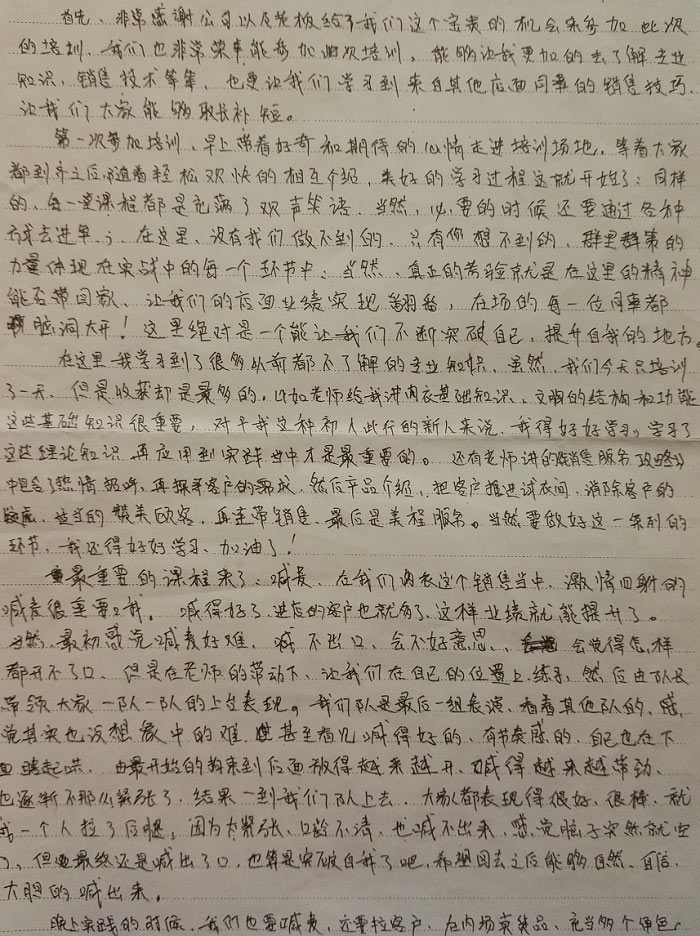 首先、非常感谢公司以及老板给了我们这个宝贵的机会来参加此次
的培训、我们也非常荣幸能参加此次培训，能够让我更加的去了解专业
知识，销售技术等等，也更让我们学习到来自其他店面同事的销售技巧，
让我们大家能够取长补短。
第一次参加培训、早上带着好奇和期待的心情走进培训场地，等着大家
都到齐之后、随着轻松欢快的相互介绍，美好的学习过程这就开始了；同样
的、每一堂课程都是充满了欢声笑语、当然，必要的时候还要通过各种
去进单、在这里、没有我们做不到的、只有你想不到的，群里群策的
力量体现在实战中的每一个环节中、当然、真正的考验就是在这里的精神
能否带回家、让我们的店面业绩实现翻番，在场的每一位同事都
脑洞大开！这里绝对是一个能让我们不断突破自己，提升自我的地方。
在这里我学习到了很多以前都不了解的专业知识、虽然、我们今天只培训
了一天，但是收获却是最多的。比如老师给我讲内衣基础知识、文胸的结构和功能
这些基础知识很重要，对于我这种初入此行的新人来说、我得好好学习，学习了
这些理论知识、再应用到实践当中才是最重要的。还有老师讲的销售服务攻略
中包含了热情招呼、再探寻客户的需求、然后产品介绍、把客户推进试衣间，消除客户的
疑虑、适当的赞美顾客、再连带销售、最后是美程服务。当然要做好这一系列的
环节、我还得好好学习、加油了！
最重要的课程来了、喊麦、在我们内衣这个销售当中、激情四射的
喊麦很重要哦。喊得好了、进店的客户也就多了、这样业绩就能提升了。
当然、最初感觉喊麦好难、喊不出口、会不好意思、会觉得怎样
都开不了口、但是在老师的带动下、让我们在自己的位置上练习、然后由队长
带领大家一队一队的上台表现。我们队是最后一组表演、看着其他队的，感
觉其实也没想象中的难、甚至看见喊得好的、有节奏感的、自己也在下
面跟着起哄、由最开始的拘束到后面放得越来越开、喊得越来越带劲、
也逐渐不那么紧张了、结果一到我们队上去、大家都表现得很好、很棒、就
我一个人拉了后腿。因为太紧张、口齿不清、也喊不出来，感觉脑子突然就空
了、但最终还是喊出了口、也算是突破自我了吧，希望回去之后能够自然、自信、
大胆的喊出来。
晚上实践的时候、我们也要喊麦，还要拉客户、在内场卖货品、充当多个角色